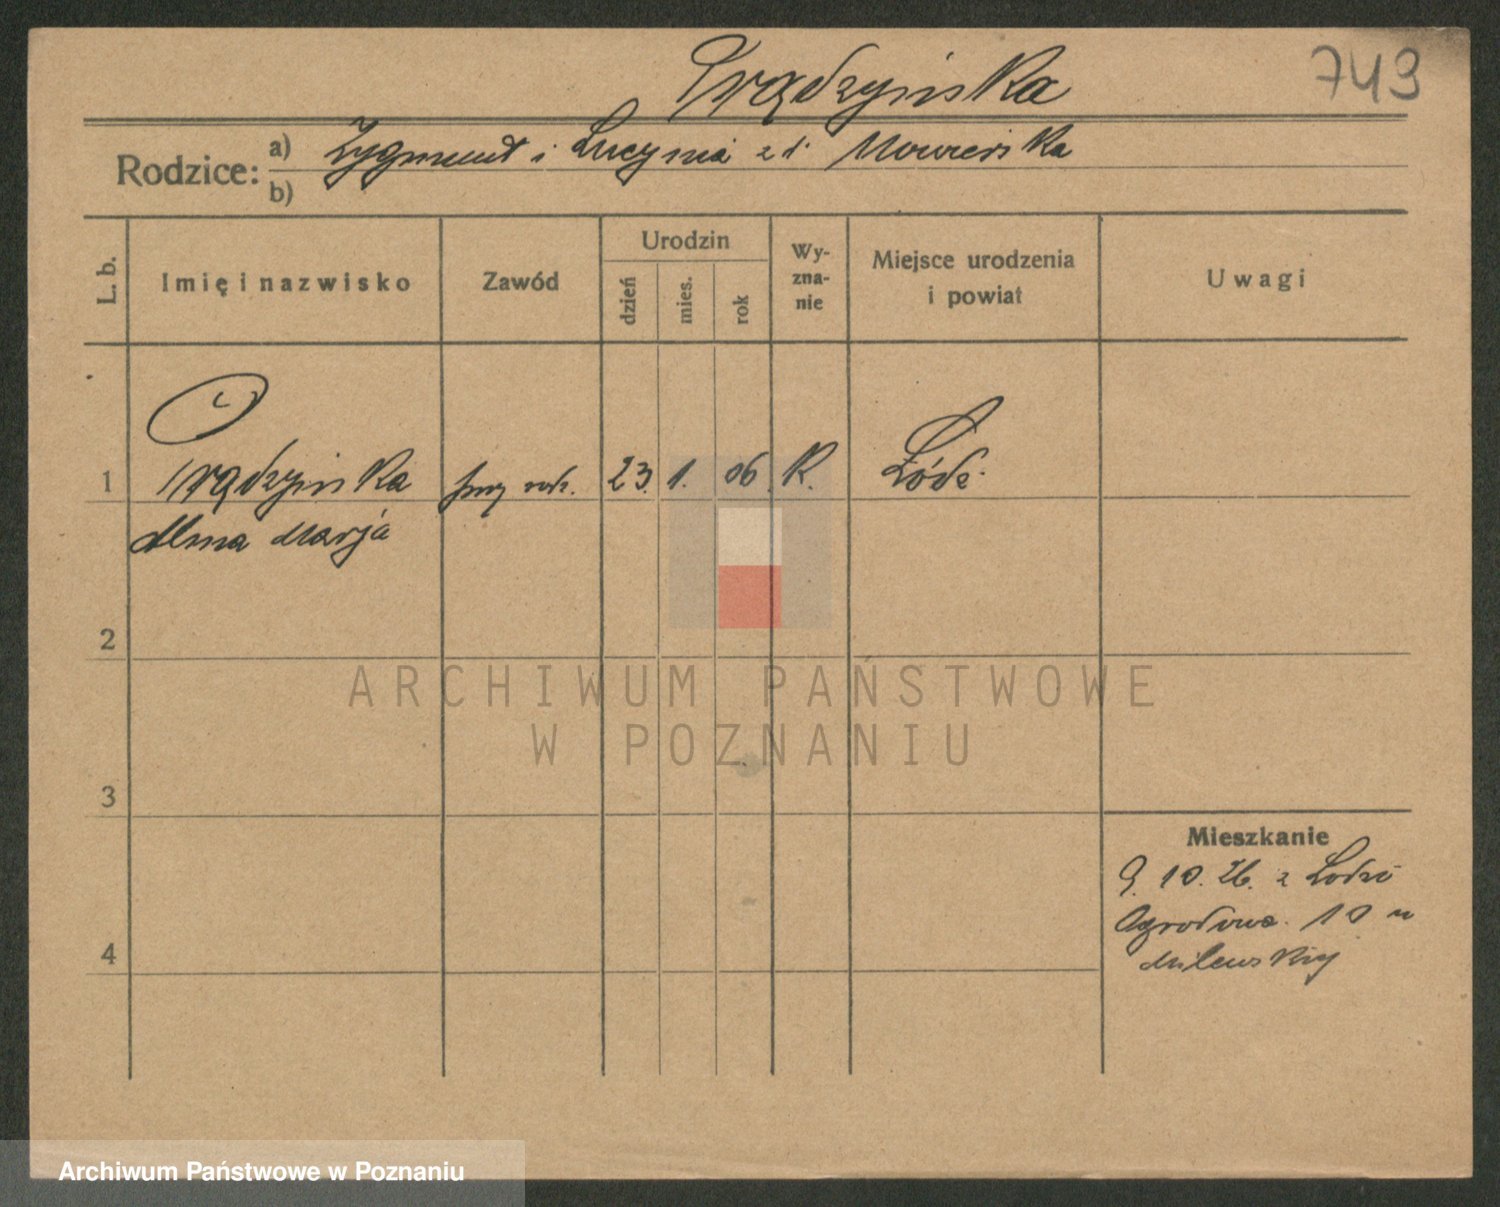 Prądzyńska
743
Rodzice: a) Zygmunt i Lucyna z d.
b)
L. b.
Imię i nazwisko
Zawód
Urodzin
dzień
mies.
rok
Wy-
zna-
nie
Miejsce urodzenia
i powiat
Uwagi
1 Prądzyńska przy rodz. 23. 1. 06. R. Łódź.
Alma Marja
2
3
4
Mieszkanie
9. 10. 26. z Łodzi
Ogrodowa. 10 u
Milewskiej
ARCHIWUM PAŃSTWOWE
W POZNANIU
Archiwum Państwowe w Poznaniu